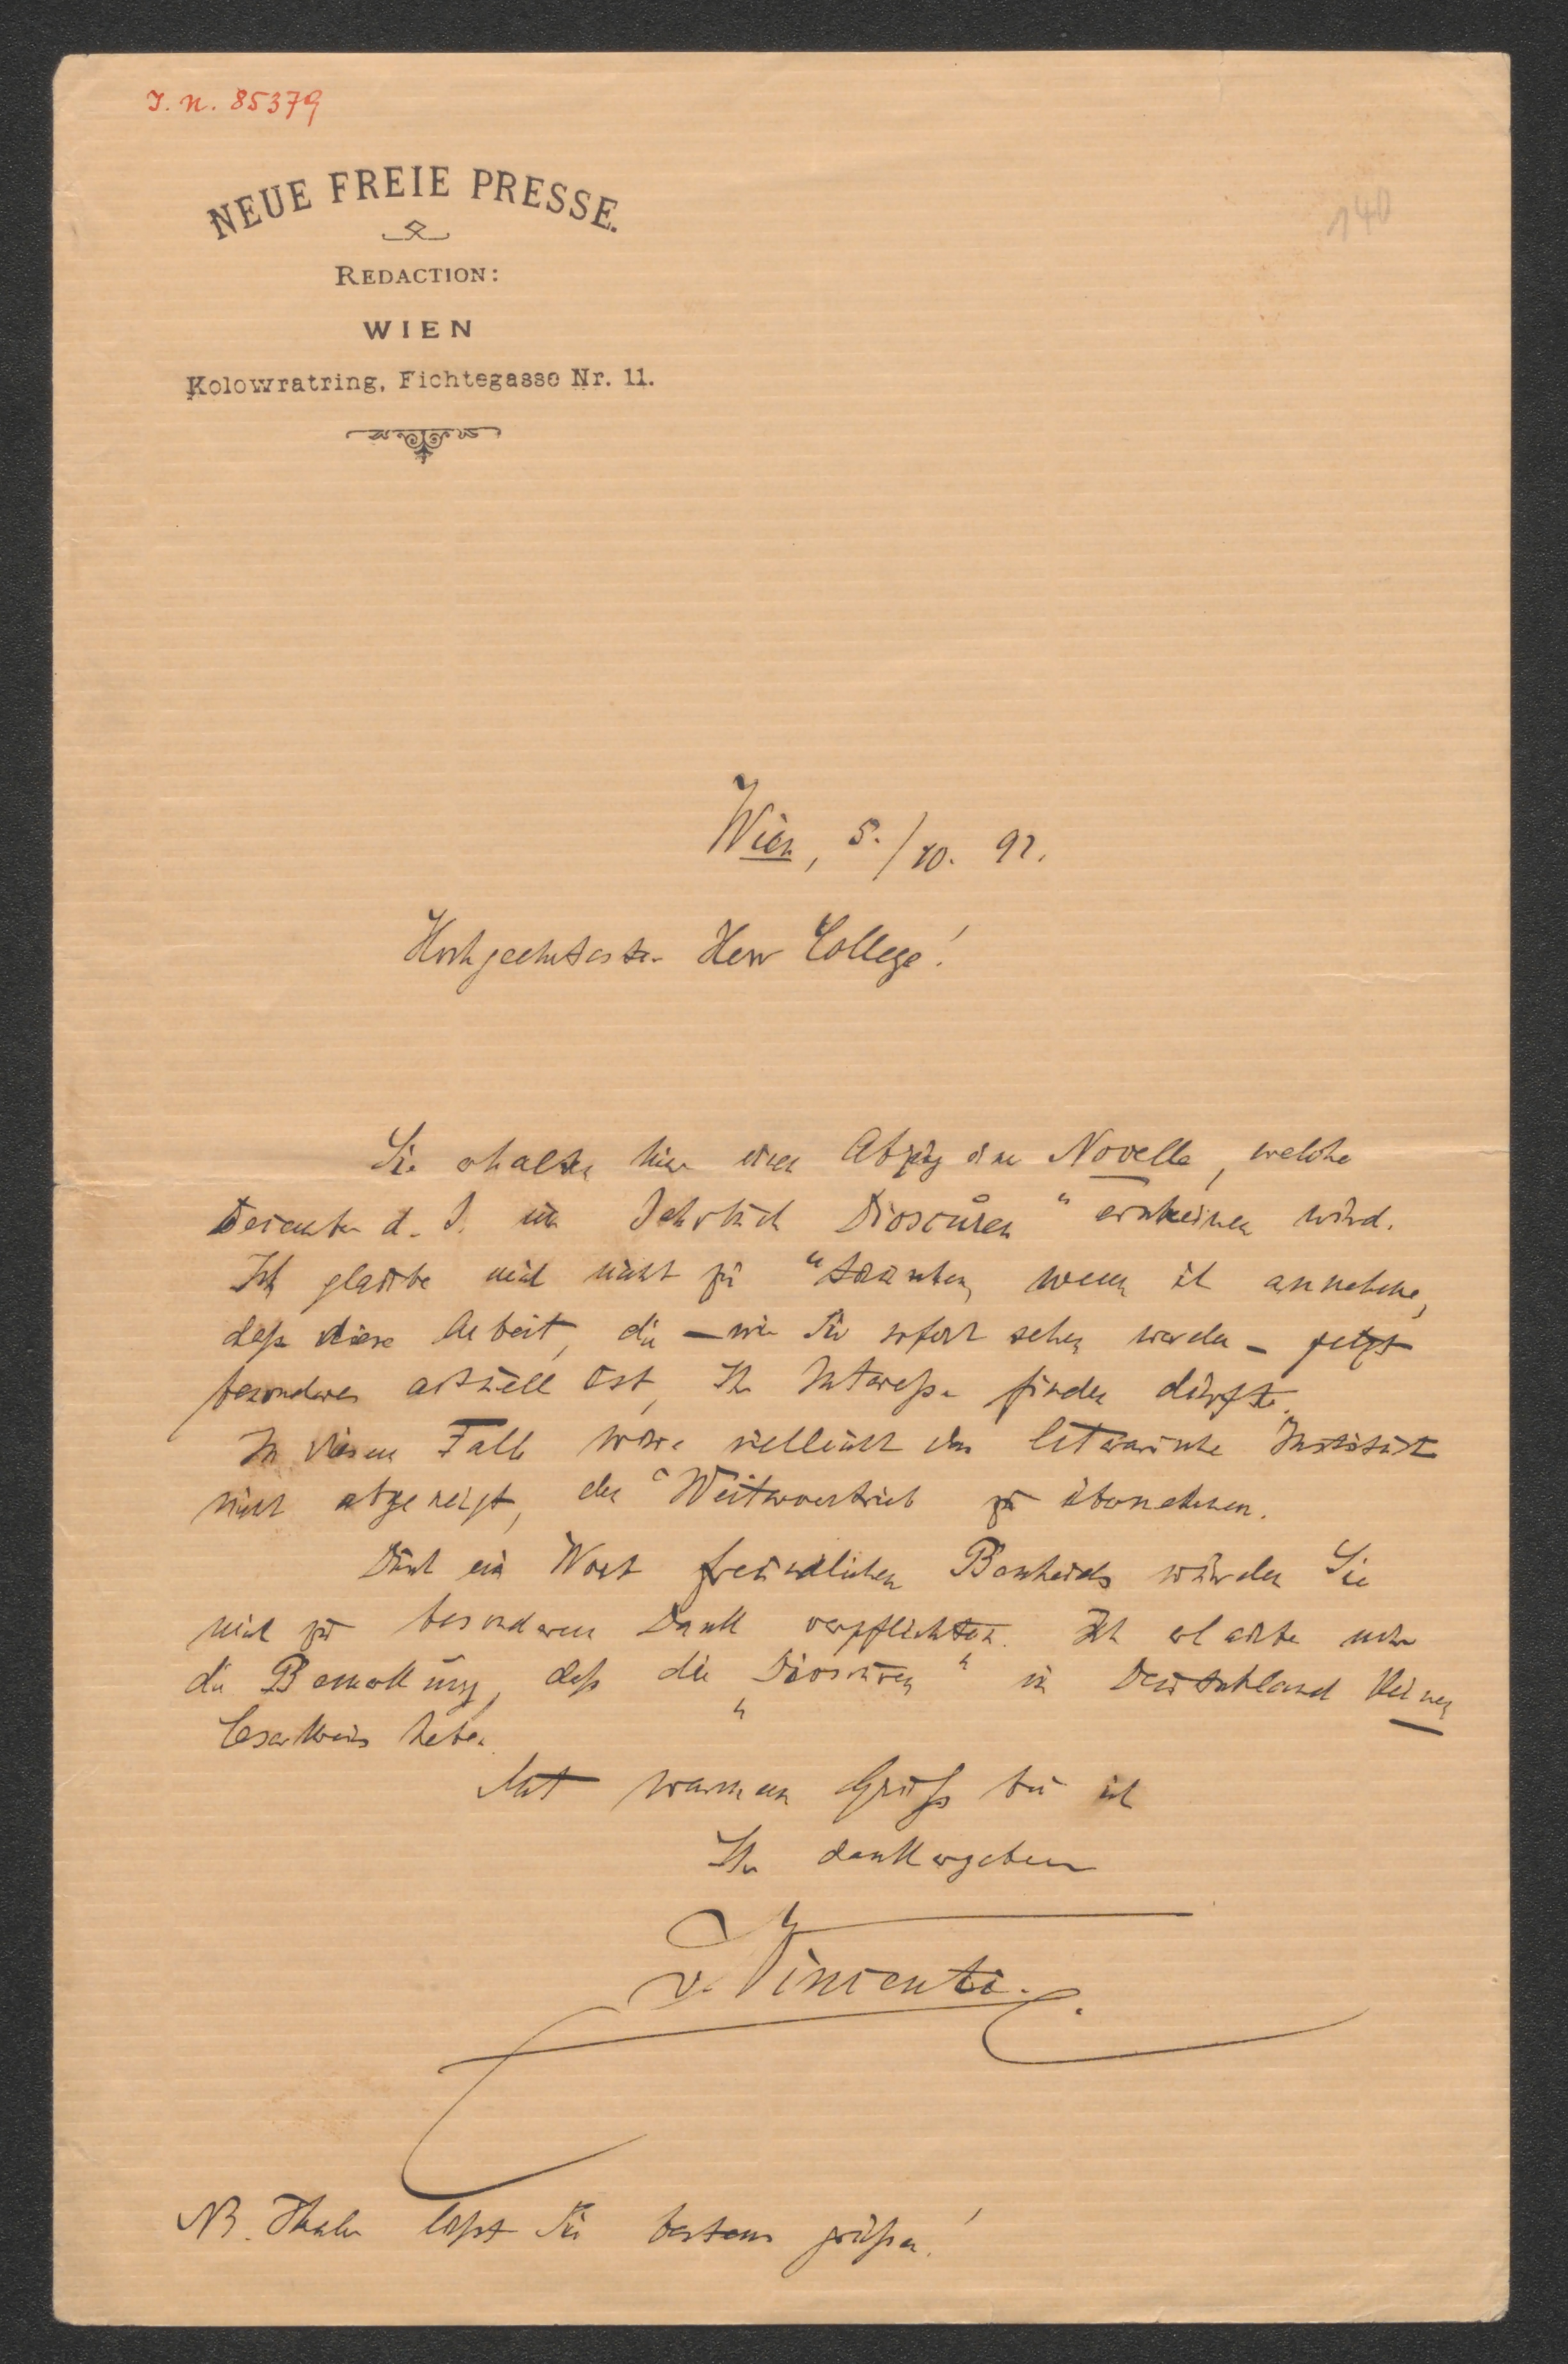 J. N. 85379
140
NEUE FREIE PRESSE.
REDACTION:
WIEN
Kolowratring, Fichtegasse Nr. 11.
Wien, 5./10. 92.
Hochgeehrtester Herr College!
Sie erhalten hier einen Abzug einer Novelle, welche
Dezember d. J. im Jahrbuch Dioscuren" erscheinen wird.
Ich glaube mich nicht zu täuschen, wenn ich annehme,
daß diese Arbeit, die – wie Sie sofort sehen werden – jetzt
besonders actuell ist, Ihr Interesse finden dürfte.
In diesem Falle wäre vielleicht das literarische Institut
nicht abgeneigt, den Weitervertrieb zu übernehmen.
Durch ein Wort freundlichen Bescheids würden Sie
mich zu besonderem Dank verpflichten. Ich erlaube mir
die Bemerkung, daß die „Dioscuren" in Deutschland keinen
Leserkreis haben.
Mit warmem Gruß bin ich
Ihr dankergebener
v. Vincenti.
NB. Thaler läßt Sie bestens grüßen!